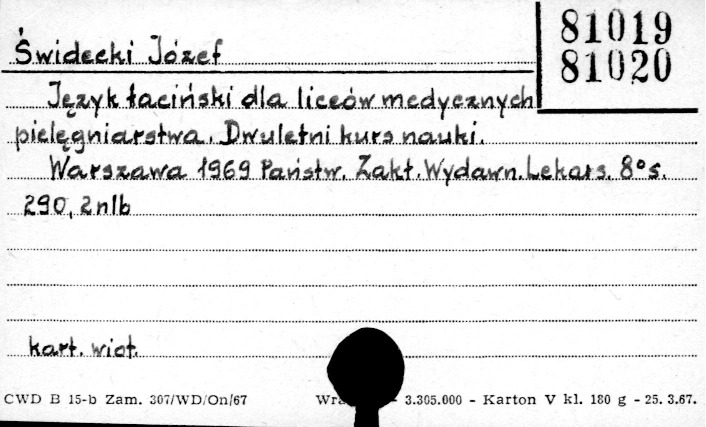 81019
81020
Świdecki Józef
Język łaciński dla liceów medycznych
pielęgniarstwa. Dwuletni kurs nauki.
Warszawa 1969 Państw. Zakł. Wydawn. Lekars. 8° s.
290, 2 nlb
kart. wiąt.
CWD B 15-b Zam. 307/WD/On/67 - 3.305.000 - Karton V kl. 180 g - 25. 3.67.